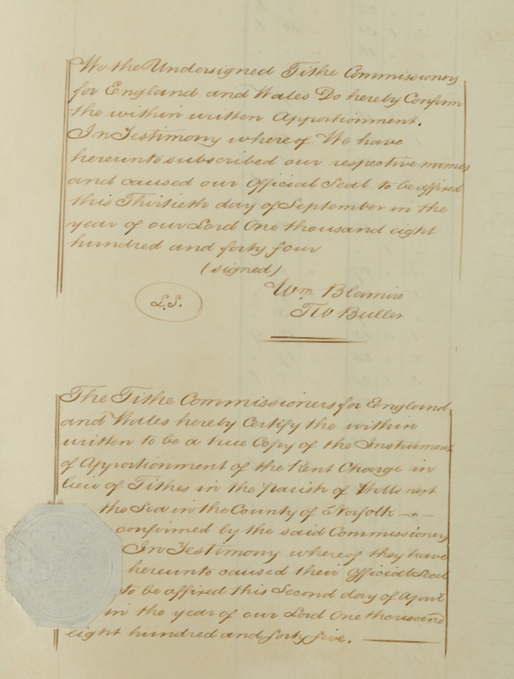 We the Undersigned Tithe Commissioners
for England and Wales Do hereby Confirm
the within written Apportionment.
In Testimony whereof We have
hereunto subscribed our respective names
and caused our Official Seal to be affixed
this Thirtieth day of September in the
year of our Lord One thousand eight
hundred and forty four
(signed)
Wm Blamire
L.S.
T W Buller
The Tithe Commissioners for England
and Wales hereby Certify the within
written to be a true Copy of the Instrument
of Apportionment of the Rent Charge in
lieu of Tithes in the Parish of Wells next
the Sea in the County of Norfolk
confirmed by the said Commissioners
In Testimony whereof they have
hereunto caused their Official Seal
to be affixed this Second day of April
in the year of our Lord One thousand
eight hundred and forty five.